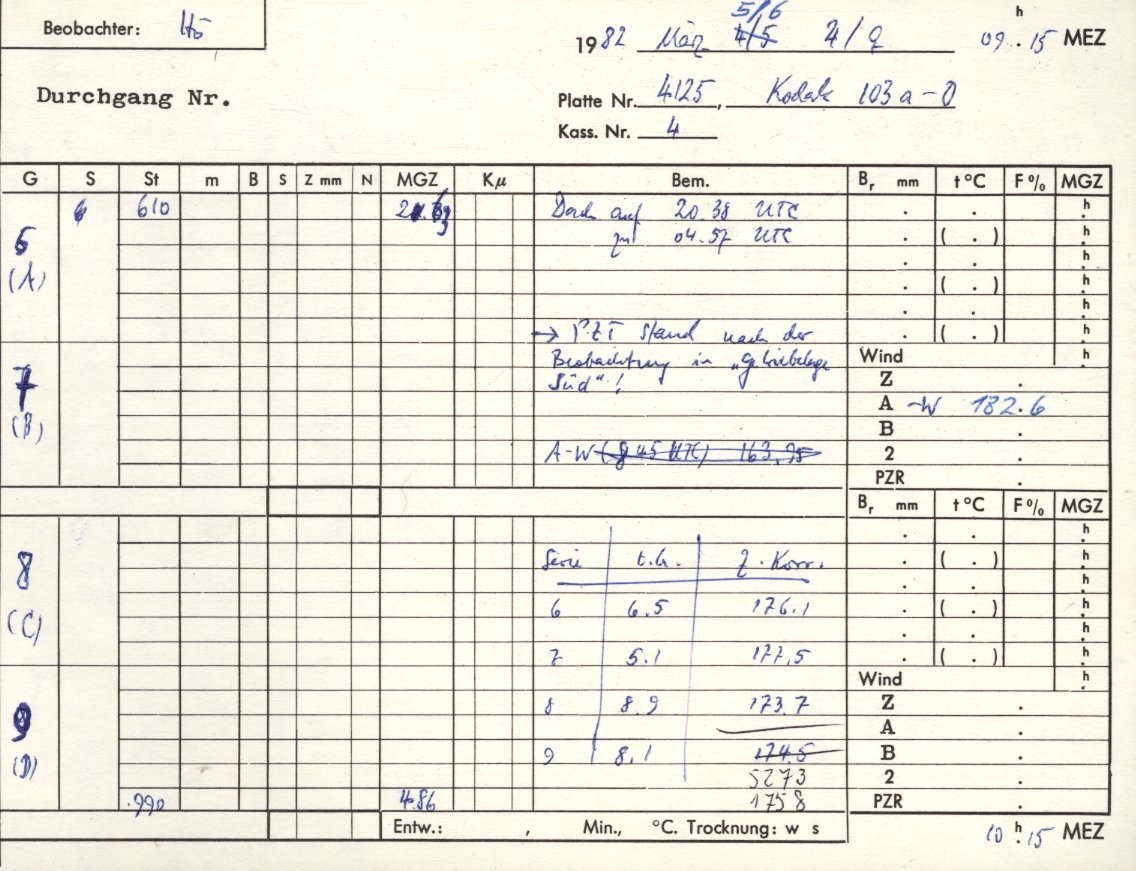 5/6 h
Beobachter: Hö
1982 März 4/5 4/9 09.15 MEZ
Durchgang Nr.
Platte Nr. 4125, Kodak 103a-O
Kass. Nr. 4
G S St m B S Z mm N MGZ Kμ Bem. Br mm t°C F% MGZ
6 610 Dach auf 20.38 UTC . . .h
6 zu 04.57 UTC . ( . ) .h
(A) . . .h
. ( . ) .h
. . .h
→ PZT stand nach der . ( . ) .h
Beobachtung in „ Wind .h
7 Süd"! Z .
A -W 182.6
(B) B .
A-W (8 45 UTC) 163,95 2 .
PZR .
Br mm t°C F% MGZ
. . .h
8 Serie t.h. Z.Korr. . ( . ) .h
. . .h
(C) 6 6.5 176.1 . ( . ) .h
. . .h
7 5.1 177,5 . ( . ) .h
Wind .h
9 8 8.9 173.7 Z .
A
(D) 9 8,1 174.5 B .
5273 2 .
.990 4.86 1758 PZR .
Entw.: , Min., °C. Trocknung: w s
10h.15 MEZ